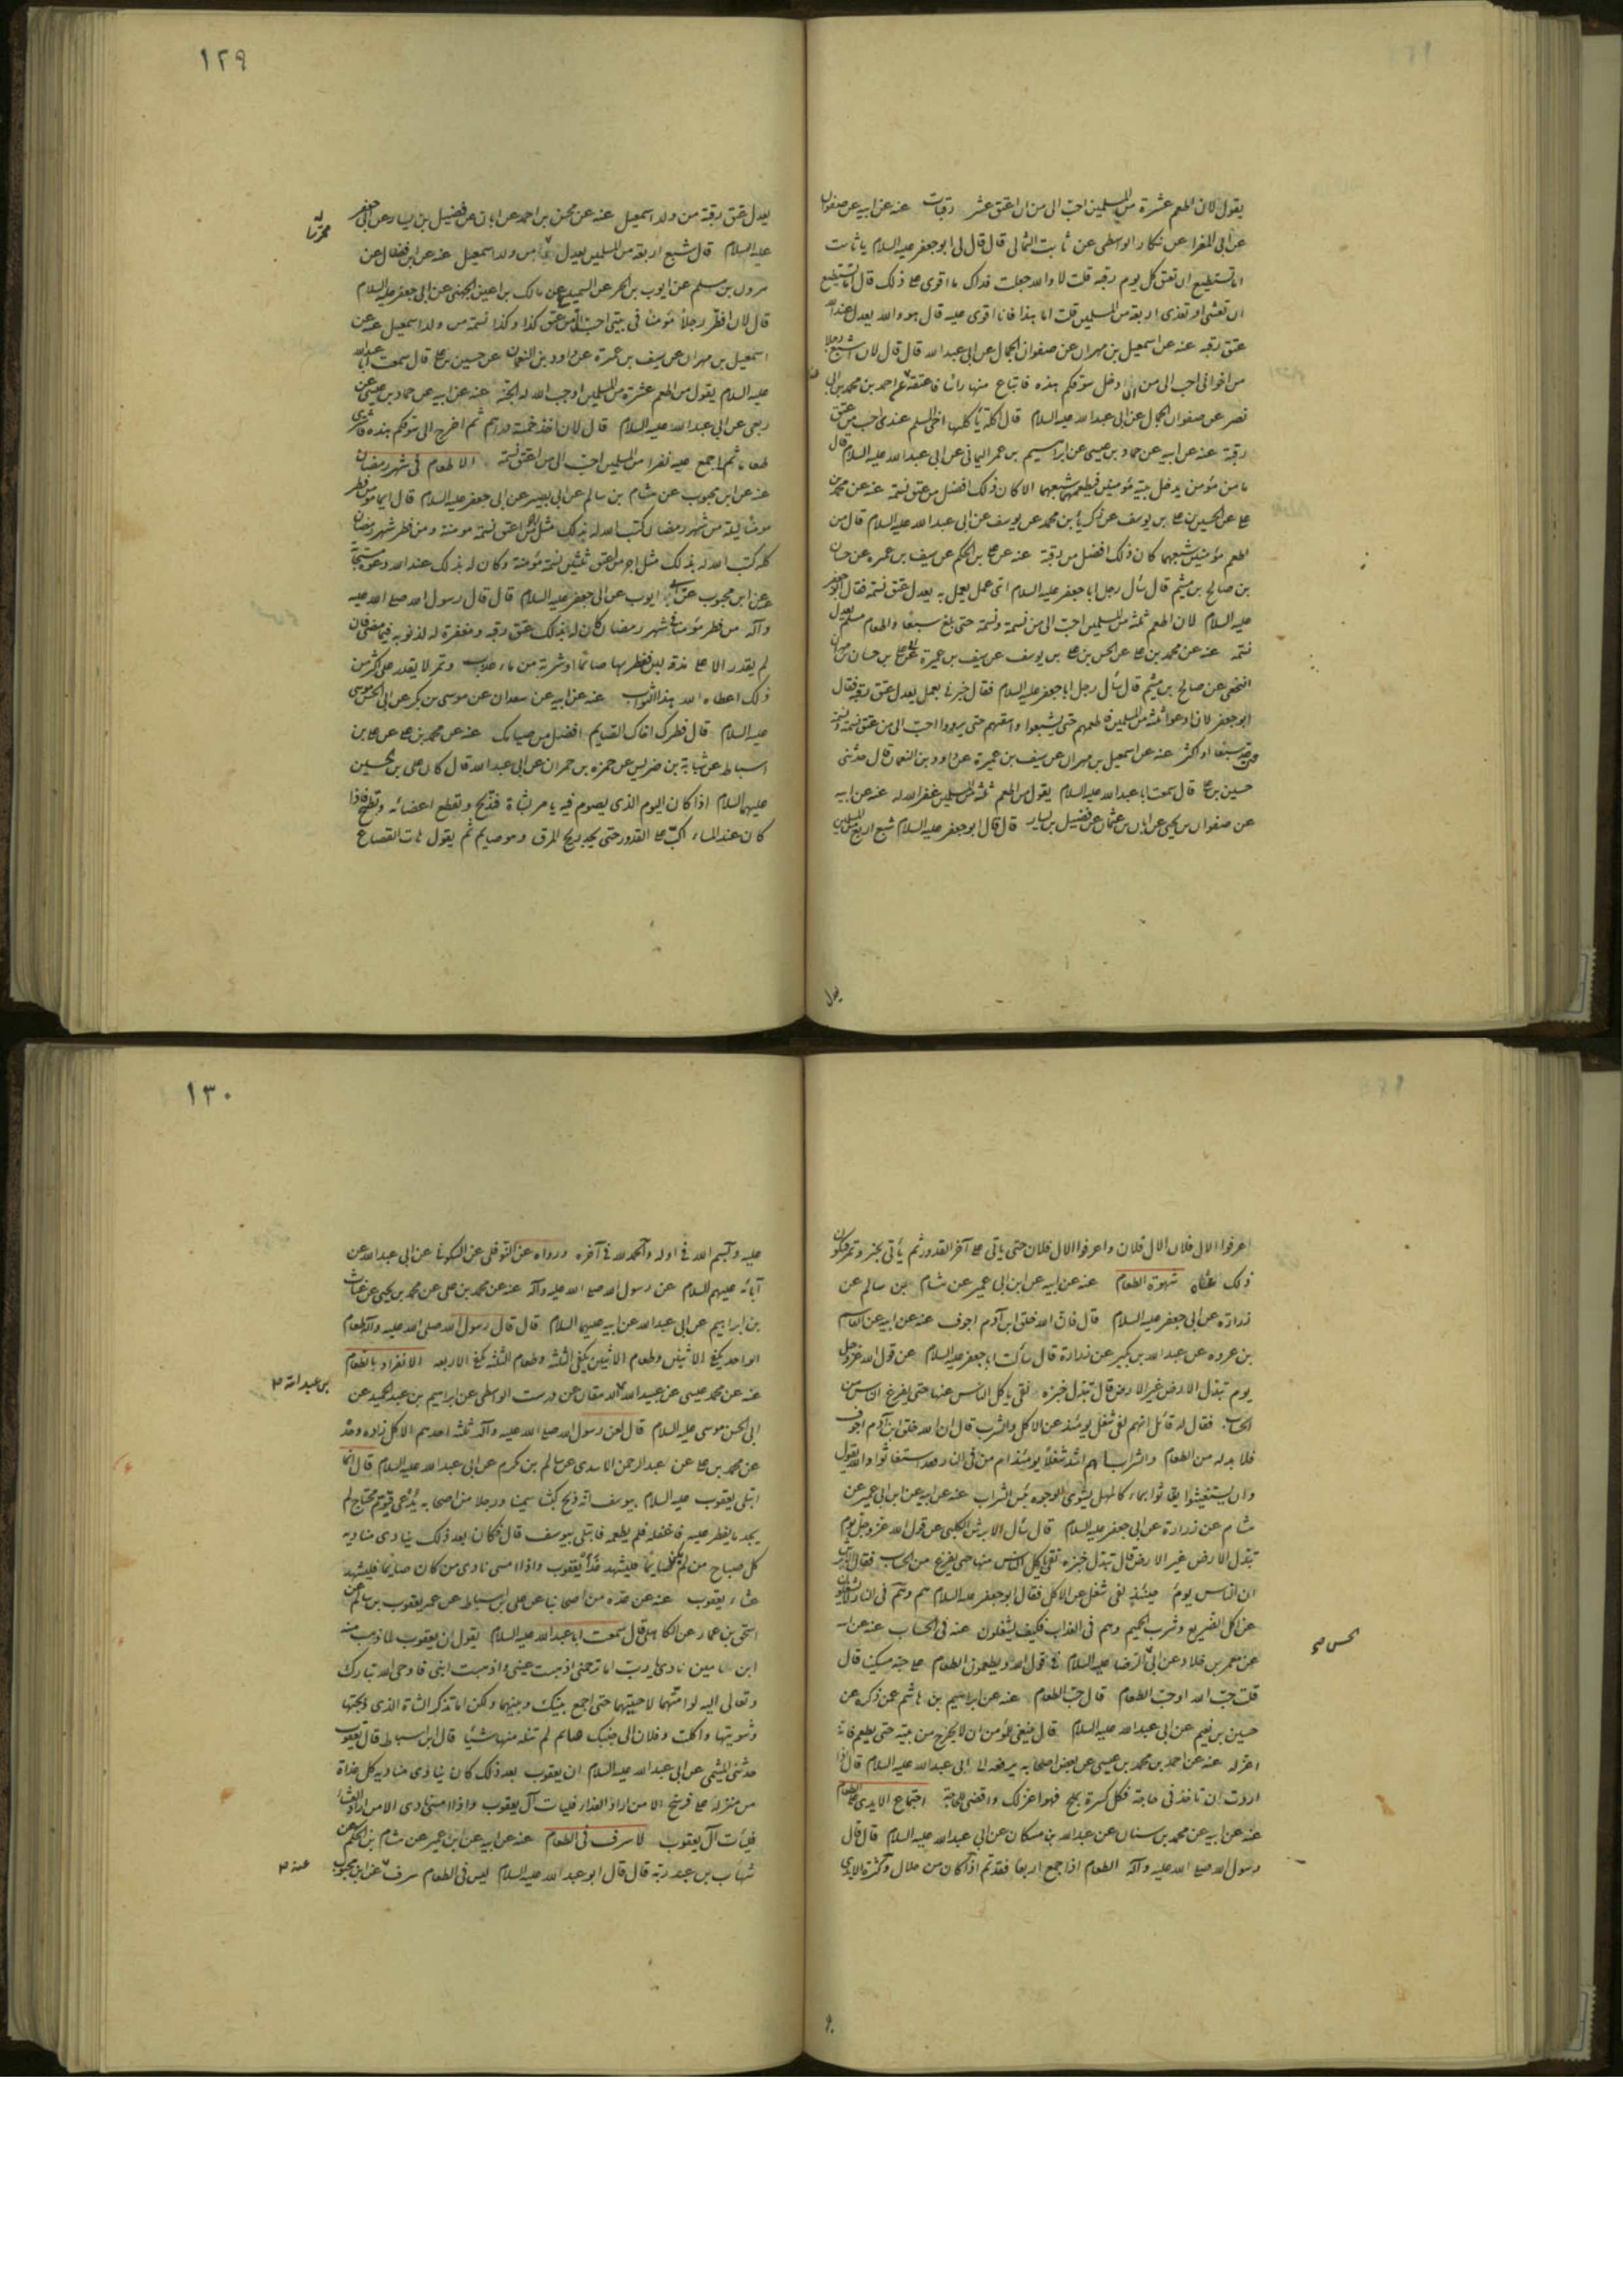 يقول لان اطعم عشرة من المسلمين احب الى من ان اعتق عشر رقبات عنه عن ابيه عن صفوان
عن ابى المغرا عن ركاز الوسطى عن ثابت الثمالى قال قال لى ابو جعفر عليه السلام يا ثابت
اما تستطيع ان تعتق كل يوم رقبة قلت لا والله جعلت فداك ما اقوى على ذلك قال اما تستطيع
ان تعشى او تغدى اربعة من المسلمين قلت اما هذا فانا اقوى عليه قال هو والله يعدل عند الله
عتق رقبه عنه عن اسمعيل بن مهران عن صفوان الجمال عن ابى عبد الله قال قال لان اشبع رجلا
من اخوانى احب الى من ان ادخل سوقكم هذه فابتاع منها راسا فاعتقه عن احمد بن محمد بن ابى
نصر عن صفوان الجمال عن ابى عبد الله عليه السلام قال اكلة يأكلها اخى المسلم عندى احب من عتق
رقبة عنه عن ابيه عن حماد بن عيسى عن ابراهيم بن عمر اليمانى عن ابى عبد الله عليه السلام قال
ما من مؤمن يدخل بيته مؤمنين فيطعمهما شبعهما الا كان ذلك افضل من عتق نسمة عنه عن محمد بن
على عن الحسين بن على بن يوسف عن زكريا بن محمد عن يوسف عن ابى عبد الله عليه السلام قال من
اطعم مؤمنين شبعهما كان ذلك افضل من رقبة عنه عن على بن الحكم عن سيف بن عميره عن حسان
بن صالح بن ميثم قال سأل رجل ابا جعفر عليه السلام اى عمل يعمل به يعدل عتق نسمة فقال ابو جعفر
عليه السلام لان اطعم ثلثة من المسلمين احب الى من نسمة ونسمة حتى بلغ سبعا واطعام مسلم يعدل
نسمة عنه عن محمد بن على عن الحسن بن على بن يوسف عن سيف بن عميرة عن على بن حسان
النخعى عن صالح بن ميثم قال سأل رجل ابا جعفر عليه السلام فقال خبرنى بعمل يعدل عتق رقبة فقال
ابو جعفر لان ادعو ثلثة من المسلمين فاطعمهم حتى يشبعوا واسقيهم حتى يرووا احب الى من عتق نسمة ونسمة
حتى عد سبعا او اكثر عنه عن اسمعيل بن مهران عن سيف بن عميرة عن داود بن النعمان قال حدثنى
حسين بن على قال سمعت ابا عبد الله عليه السلام يقول من اطعم ثلثة من المسلمين غفر الله له عنه عن ابيه
عن صفوان بن يحيى عن ابان بن عثمان عن فضيل بن يسار قال قال ابو جعفر عليه السلام شبع اربع من المسلمين
١٢٩
يعدل عتق رقبة من ولد اسمعيل عنه عن محسن بن احمد عن ابان عن فضيل بن يسار عن ابى جعفر
عليه السلام قال شبع اربعة من المسلمين يعدل من ولد اسمعيل عنه عن ابن فضال عن
هرون بن مسلم عن ايوب بن الحر عن السميدع عن مالك بن اعين الجهنى عن ابى جعفر عليه السلام
قال لان افطر رجلا مؤمنا فى بيتى احب الى من عتق كذا وكذا نسمة من ولد اسمعيل عنه عن
اسمعيل بن مهران عن سيف بن عميرة عن داود بن النعمان عن حسين بن على قال سمعت ابا عبد الله
عليه السلام يقول من اطعم عشرة من المسلمين اوجب الله له الجنة عنه عن ابيه عن حماد بن عيسى عن
ربعى عن ابى عبد الله عليه السلام قال لان اخذ خمسة دراهم ثم اخرج الى سوقكم هذه فاشترى
طعاما ثم اجمع عليه نفرا من المسلمين احب الى من اعتق نسمة الاطعام فى شهر رمضان
عنه عن ابن محبوب عن هشام بن سالم عن ابى بصير عن ابى جعفر عليه السلام قال ايما مؤمن فطر
مؤمنا ليلة من شهر رمضان كتب الله له بذلك مثل اجر من اعتق نسمة مومنة ومن فطر شهر رمضان
كله كتب الله له بذلك مثل اجر من اعتق ثلثين نسمة مؤمنة وكان له بذلك عند الله دعوة مستجابة
عن ابن محبوب عن ابى ايوب عن ابى جعفر عليه السلام قال قال رسول الله صلى الله عليه
وآله من فطر مؤمنا فى شهر رمضان كان له بذلك عتق رقبه ومغفرة له لذنوبه فيما مضى فان
لم يقدر الا على مذقة لبن ففطر بها صائما او شربة من ماء عذب وتمر لا يقدر على اكثر من
ذلك اعطاه الله هذا الثواب عنه عن ابيه عن سعدان عن موسى بن بكر عن ابى الحسن موسى
عليه السلام قال فطرك اخاك الصايم افضل من صيامك عنه عن محمد بن على عن على بن
اسباط عن سيابة بن ضريس عن حمزه بن حمران عن ابى عبد الله قال كان على بن الحسين
عليهما السلام اذا كان اليوم الذى يصوم فيه يامر بشاة فتذبح وتقطع اعضائه وتطبخ فاذا
كان عند المساء اكب على القدور حتى يجد ريح المرق وهو صايم ثم يقول هات القصاع
يعدل
اغرفوا لال فلان لال فلان واغرفوا لال فلان حتى ياتى على آخر القدور ثم يأتى بخبز وتمر فيكون
ذلك عشاه شهوة الطعام عنه عن ابيه عن ابن ابى عمير عن هشام بن سالم عن
زرارة عن ابى جعفر عليه السلام قال فان الله خلق ابن آدم اجوف عنه عن ابيه عن القاسم
بن عروه عن عبد الله بن بكير عن زرارة قال سألت ابا جعفر عليه السلام عن قول الله عز وجل
يوم تبدل الارض غير الارض قال تبدل خبزه نقى ياكل الناس عنها حتى يفرغ الناس من
الحساب فقال له قائل انهم لفى شغل يومئذ عن الاكل والشرب قال ان الله خلق ابن آدم اجوف
فلا بد له من الطعام والشراب اهم اشد شغلا يومئذ ام من فى النار فقد استغاثوا والله يقول
وان يستغيثوا يغاثوا بماء كالمهل يشوى الوجوه بئس الشراب عنه عن ابيه عن ابن ابى عمير عن
هشام عن زرارة عن ابى جعفر عليه السلام قال سأل الابرش الكلبى عن قول الله عز وجل يوم
تبدل الارض غير الارض قال تبدل خبزه نقى ياكل الناس منها حتى يفرغ من الحساب فقال الابرش
ان الناس يومئذ لفى شغل عن الاكل فقال ابو جعفر عليه السلام هم وهم فى النار لا يشغلون
عن اكل الضريع وشرب الحميم وهم فى العذاب فكيف يشغلون عنه فى الحساب عنه عن ابيه
عن معمر بن خلاد عن ابى الرضا عليه السلام فى قول الله ويطعمون الطعام على حبه مسكينا قال
قلت حب الله او حب الطعام قال حب الطعام عنه عن ابراهيم بن هاشم عمن ذكره عن
حسين بن نعيم عن ابى عبد الله عليه السلام قال ينبغى للمؤمن ان لا يخرج من بيته حتى يطعم فانه
اعز له عنه عن احمد بن محمد بن عيسى عن بعض اصحابه يرفعه الى ابى عبد الله عليه السلام قال اذا
اردت ان تاخذ فى حاجة فكل كسرة بملح فهو اعز لك واقضى للحاجة اجتماع الايدى على الطعام
عنه عن ابيه عن محمد بن سنان عن عبد الله بن مسكان عن ابى عبد الله عليه السلام قال قال
رسول الله صلى الله عليه وآله الطعام اذا جمع اربعا فقد تم اذا كان من حلال وكثرة الايدى
١٣٠
عليه وبسم الله فى اوله والحمد لله فى آخره ورواه عن النوفلى عن السكونى عن ابى عبد الله عن
آبائه عليهم السلام عن رسول الله صلى الله عليه وآله عنه عن محمد بن على عن محمد بن يحيى عن غياث
بن ابراهيم عن ابى عبد الله عن ابيه عليهما السلام قال قال رسول الله صلى الله عليه وآله طعام
الواحد يكفى الاثنين وطعام الاثنين يكفى الثلثة وطعام الثلثة يكفى الاربعه الانفراد بالطعام
بن عبد الله
عنه عن محمد عيسى عن عبيد الله الدهقان عن درست الواسطى عن ابراهيم بن عبد الحميد عن
ابى الحسن موسى عليه السلام قال لعن رسول الله صلى الله عليه وآله ثلثه احدهم الاكل زاده وحده
عن محمد بن على عن عبد الرحمن الاسدى عن سالم بن مكرم عن ابى عبد الله عليه السلام قال انما
ابتلى يعقوب عليه السلام بيوسف انه ذبح كبشا سمينا ورجلا من اصحابه يدعى قيوم محتاج لم
يجد ما يفطر عليه فاغفله فلم يطعمه فابتلى بيوسف قال فكان بعد ذلك ينادى مناديه
كل صباح من لم يكن صايما فليشهد غداء يعقوب واذا امسى نادى من كان صايما فليشهد
عشاء يعقوب عنه عن عده من اصحابنا عن على بن اسباط عن عمه يعقوب بن سالم عن
اسحق بن عمار عن الكاهلى قال سمعت ابا عبد الله عليه السلام يقول ان يعقوب لما ذهب منه
ابن يامين نادى يا رب اما ترحمنى اذهبت عينى واذهبت ابنى فاوحى الله تبارك
وتعالى اليه لو امتهما لاحييتهما حتى اجمع بينك وبينهما ولكن اما تذكر الشاة الذى ذبحتها
وشويتها واكلت وفلان الى جنبك صايم لم تنله منها شيئا قال ابن اسباط قال يعقوب
حدثنى الميثمى عن ابى عبد الله عليه السلام ان يعقوب بعد ذلك كان ينادى مناديه كل غداة
من منزله على فرسخ الا من اراد الغداء فليات آل يعقوب واذا امسى نادى الا من اراد العشاء
فليأت آل يعقوب لا سرف فى الطعام عنه عن ابيه عن ابن عمير عن هشام بن الحكم عن
شهاب بن عبد ربه قال قال ابو عبد الله عليه السلام ليس فى الطعام سرف عن ابن محبوب
عنه